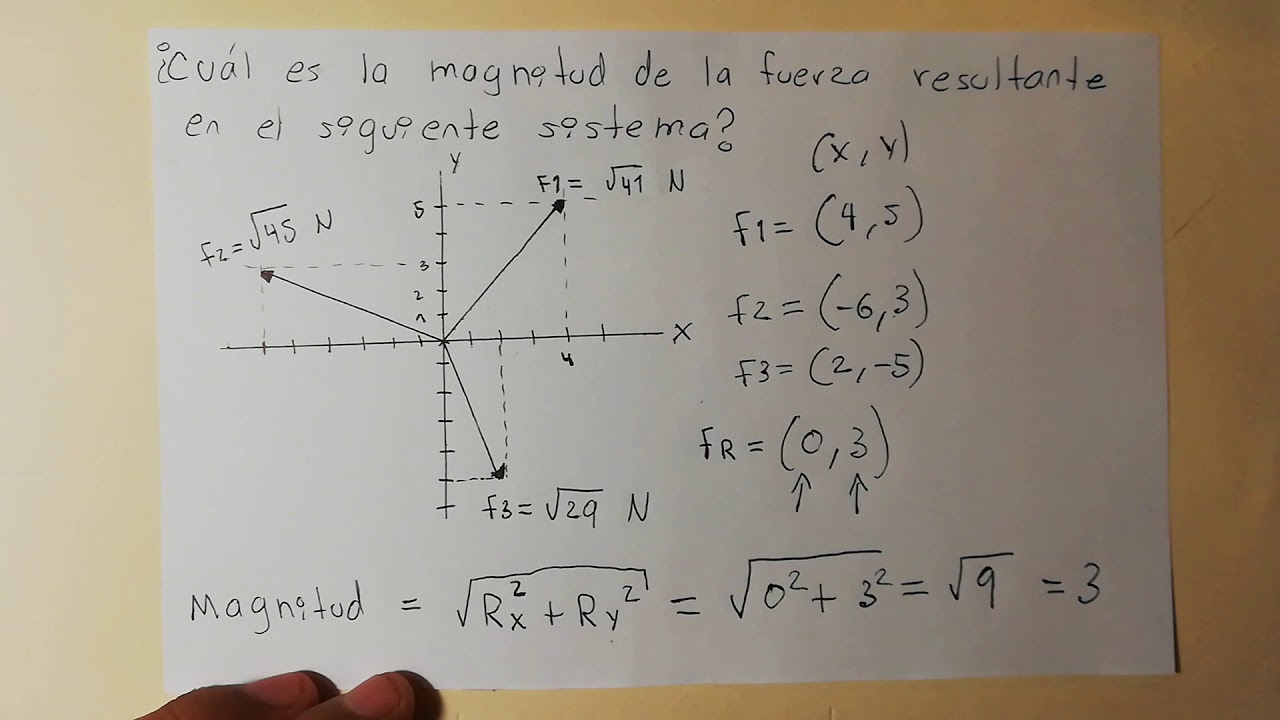 ¿Cuál es la magnitud de la fuerza resultante
en el siguiente sistema?
(x, y)
y
F1 = √41 N
5
F2 = √45 N
3
2
1
x
4
F3 = √29 N
F1 = (4, 5)
F2 = (-6, 3)
F3 = (2, -5)
FR = (0, 3)
Magnitud = √(Rx² + Ry²) = √(0² + 3²) = √9 = 3